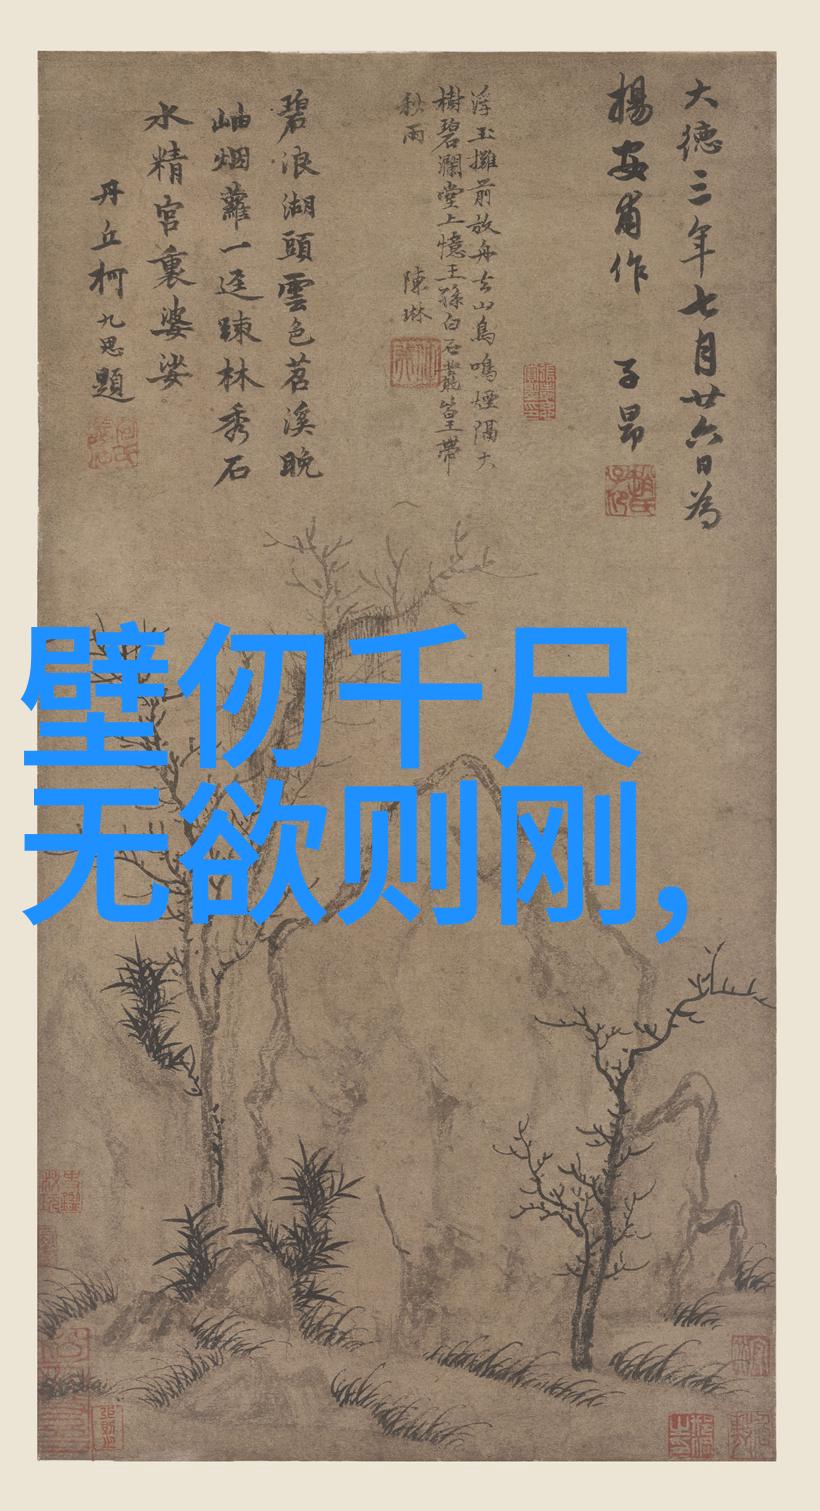 大德三年七月廿六日為
楊安甫作 子昂
浮玉攤前放舟去山鳥鳴煙隔大
樹碧瀾堂上憶王孫白石叢篁帶
秋雨 陳琳
碧浪湖頭雲色苕溪晚
岫烟蘿一逕踈林秀石
水精宮裏婆娑
丹丘柯九思題
壁仞千尺
无欲则刚，